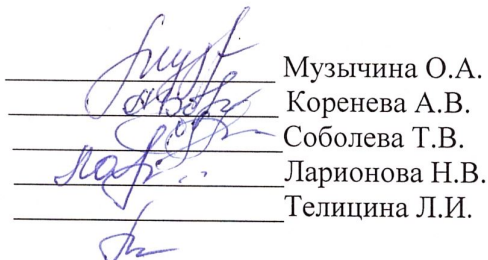 Музычина О.А.
Коренева А.В.
Соболева Т.В.
Ларионова Н.В.
Телицина Л.И.